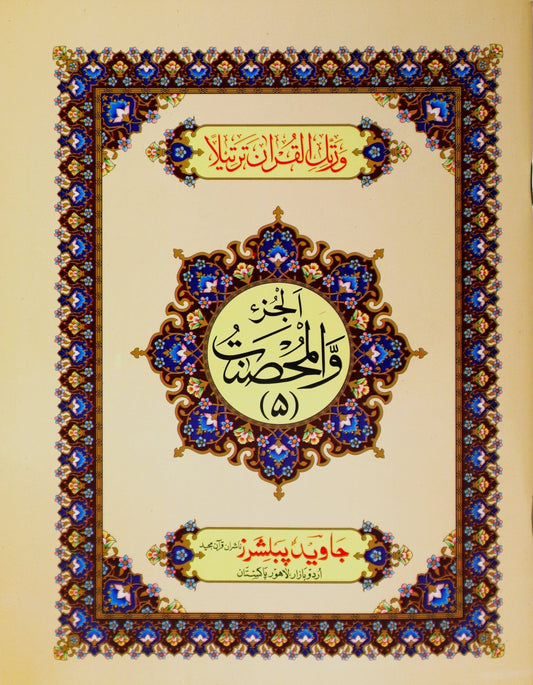 وَرَتِّلِ الْقُرْاٰنَ تَرْتِيْلًا
اَلْجُزْء
وَّالْمُحْصَنٰتُ
(۵)
جاوید پبلشرز ناشران قرآن مجید
اردو بازار، لاہور پاکستان